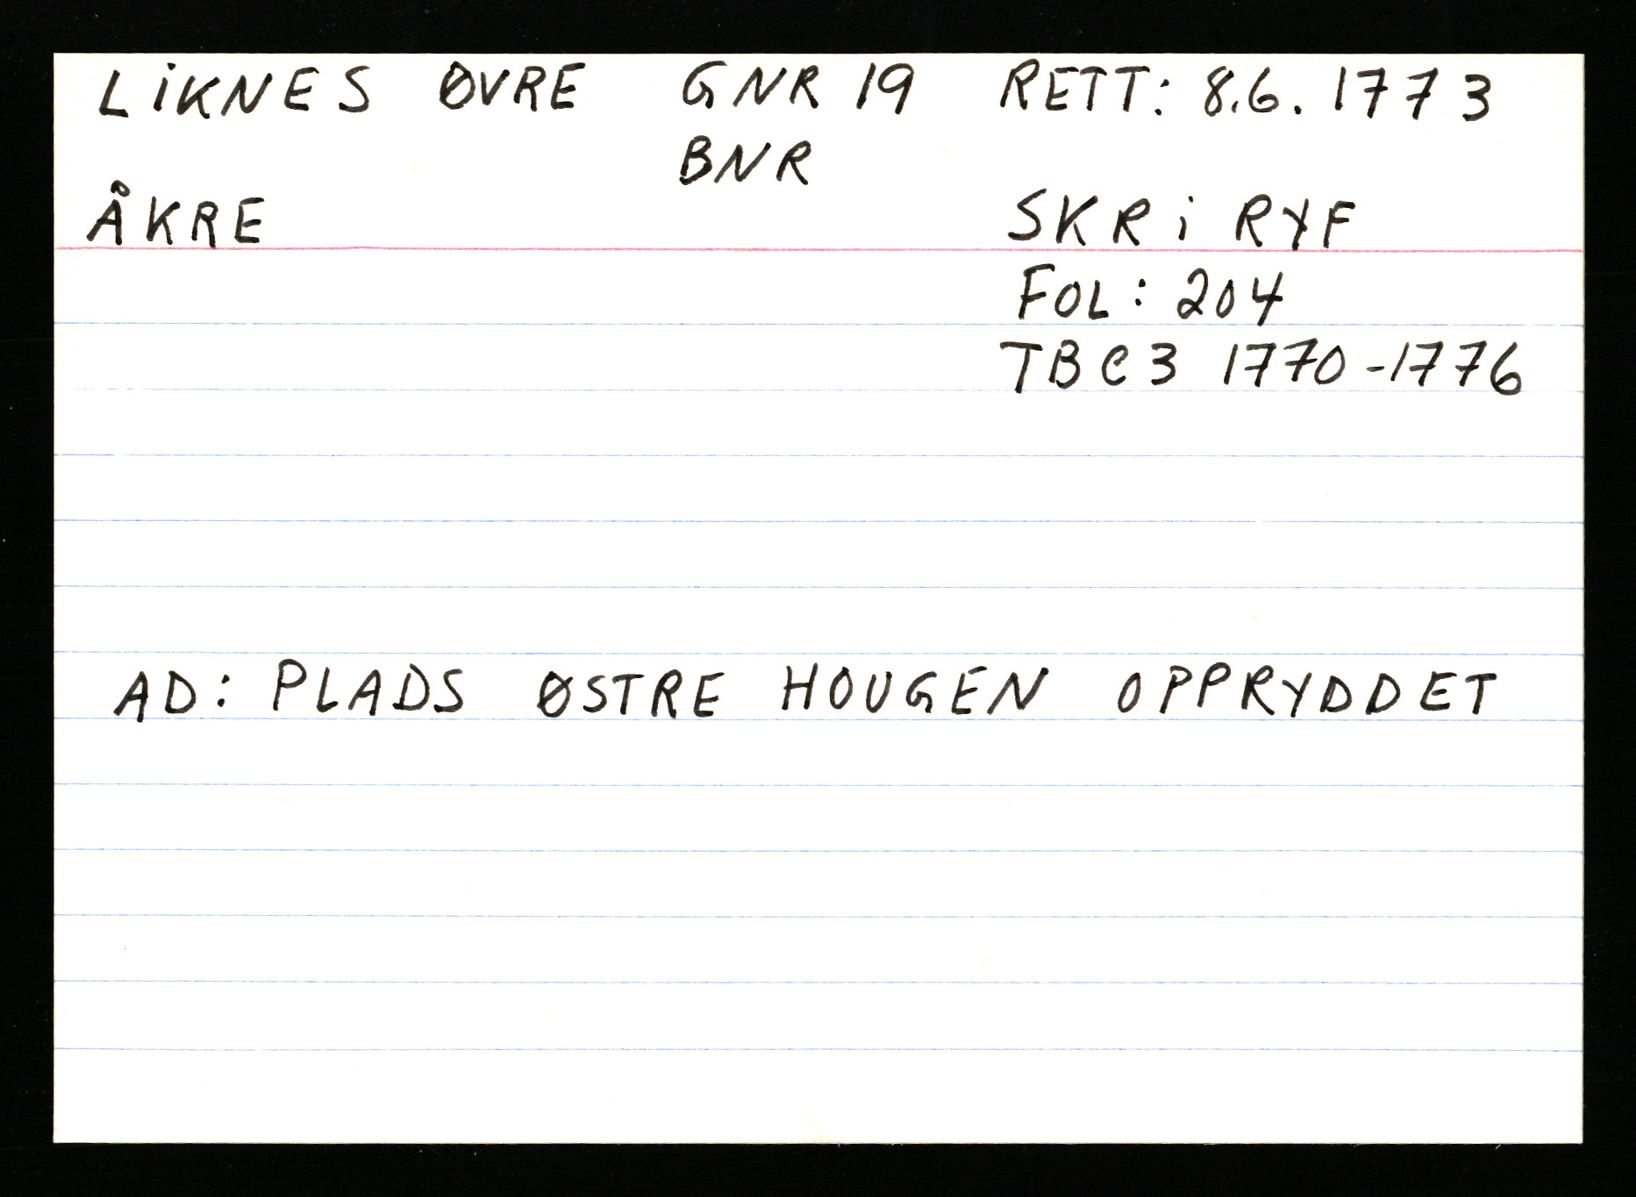 LIKNES ØVRE GNR 19 RETT: 8.6. 1773
BNR
ÅKRE SKRI RYF
FOL: 204
TB C3 1770-1776
AD: PLADS ØSTRE HOUGEN OPPRYDDET